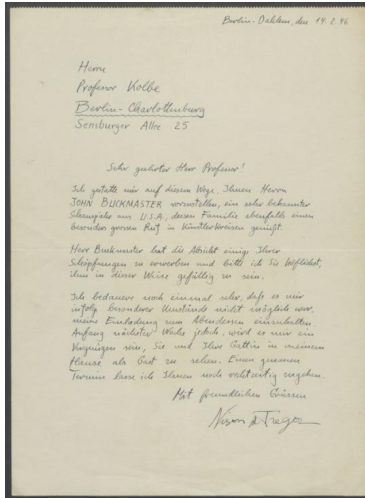 Berlin-Dahlem, den 19.2.46
Herrn
Professor Kolbe
Berlin-Charlottenburg
Sensburger Allee 25
Sehr geehrter Herr Professor!
Ich gestatte mir auf diesem Wege, Ihnen Herrn
JOHN BUCKMASTER vorzustellen, ein sehr bekannter
aus U.S.A., dessen Familie ebenfalls einen
besonders grossen Ruf in Künstlerkreisen geniesst.
Herr Buckmaster hat die Absicht einige Ihrer
Schöpfungen zu erwerben und bitte ich Sie höflichst,
ihm in dieser Weise gefällig zu sein.
Ich bedauere noch einmal sehr, daß es mir
infolge besonderer Umstände nicht möglich war,
meine Einladung zum Abendessen einzuhalten.
Anfang nächster Woche jedoch, wird es mir ein
Vergnügen sein, Sie und Ihre Gattin in meinem
Hause als Gast zu sehen. Einen genauen
Termin lasse ich Ihnen noch rechtzeitig zugehen.
Mit freundlichen Grüssen